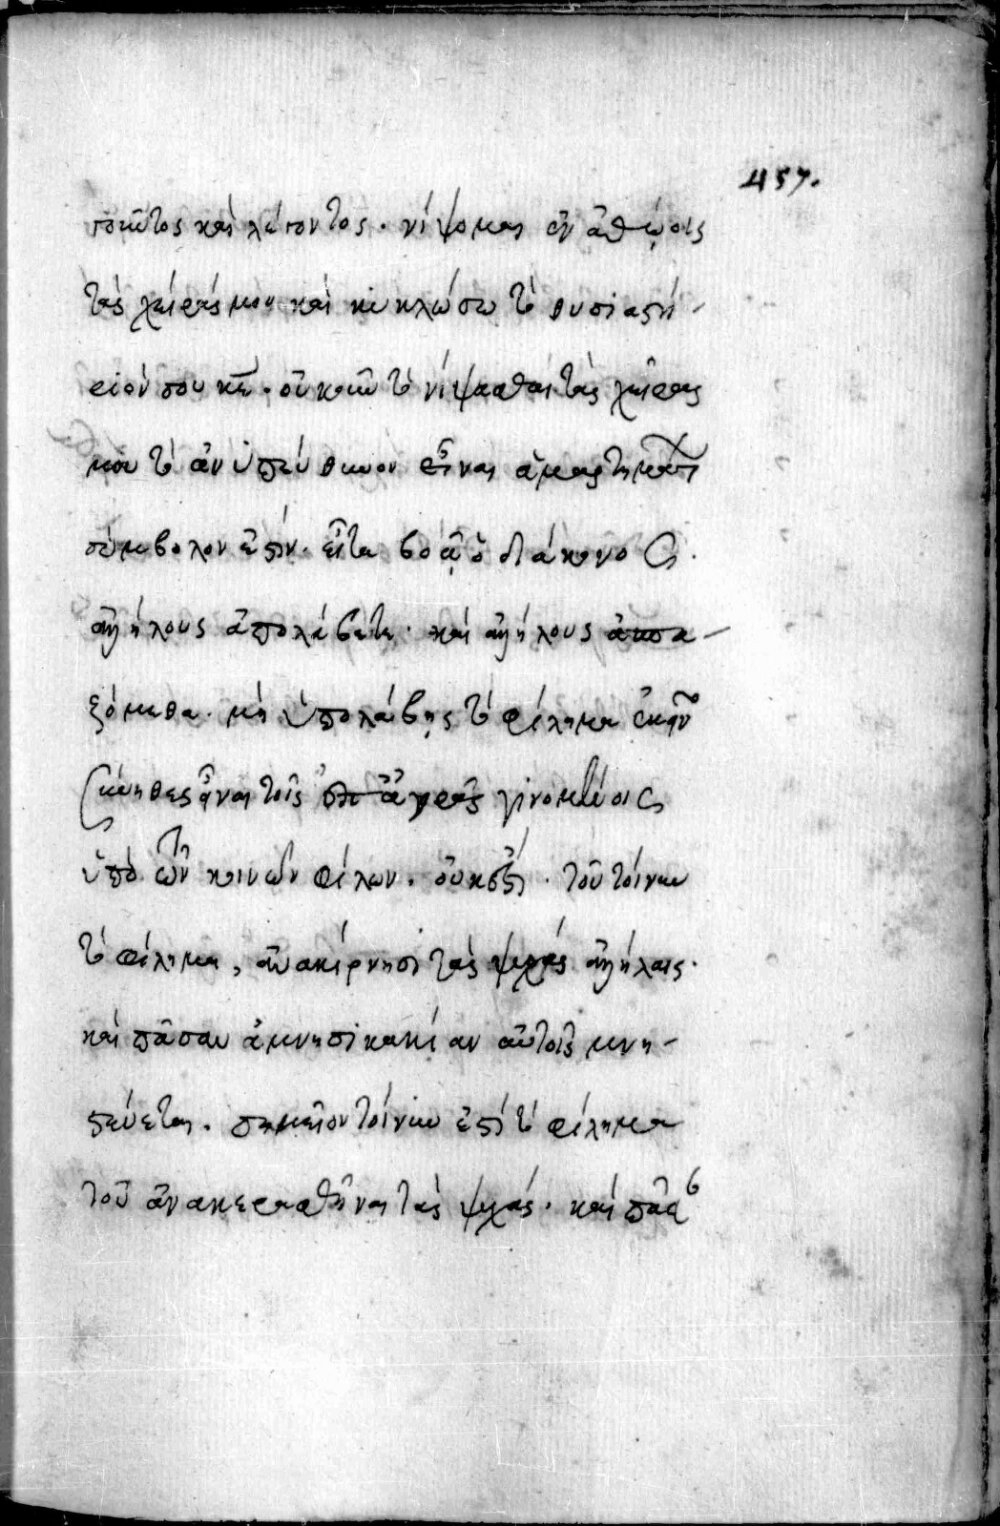 457.
τοῦτος καὶ λέγοντος. νίψομαι ἐν ἀθώοις
τὰς χεῖράς μου καὶ κυκλώσω τὸ θυσιαστή-
ριόν σου κε. οὐκοῦν τὸ νίψασθαι τὰς χεῖρας
μου τὸ ἀνυπεύθυνον εἶναι ἁμαρτημάτων
σύμβολον ἐστίν. εἶτα βοᾷ ὁ διάκονος.
ἀλλήλους ἀπολάβετε. καὶ ἀλλήλους ἀσπα-
ζόμεθα. μὴ ὑπολάβῃς τὸ φίλημα ἐκεῖνο
σύνηθες εἶναι τοῖς ἐπ' ἀγορᾶς γινομένοις
ὑπὸ τῶν κοινῶν φίλων. οὐκ ἔστι τοῦτο τοίνυν
τὸ φίλημα, ἀνακίρνησι τὰς ψυχὰς ἀλλήλαις.
καὶ πᾶσαν ἀμνησικακίαν αὐτοῖς μνη-
στεύεται. σημεῖον τοίνυν ἐστὶ τὸ φίλημα
τοῦ ἀνακραθῆναι τὰς ψυχάς. καὶ πᾶσαν